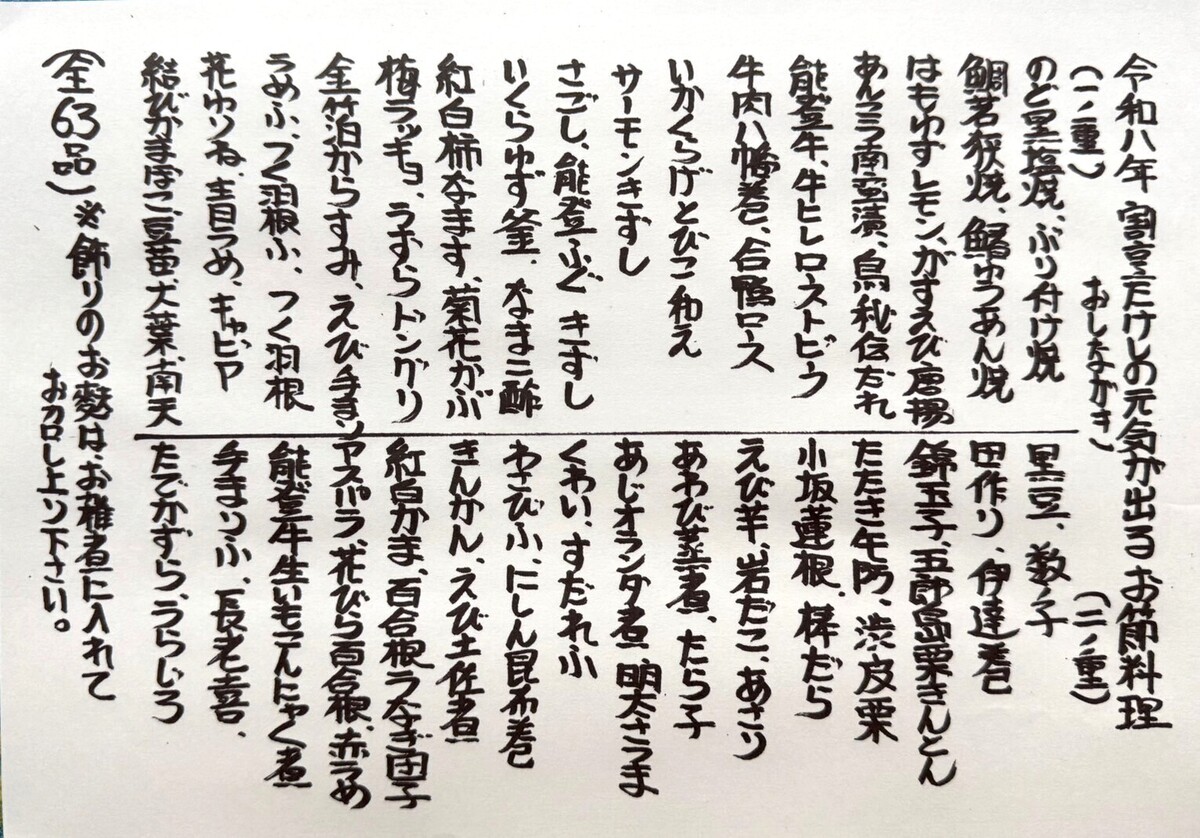 令和八年 割烹たけしの元気が出るお節料理
おしながき)
(一ノ重)
のど黒塩焼、ぶり付け焼
鯛若狭焼、鰆ゆうあん焼
はもゆずレモン、がすえび唐揚
あんこう南蛮漬、鳥秘伝だれ
能登牛、牛ヒレローストビーフ
牛肉八幡巻、合鴨ロース
いかくらげとびこ和え
サーモンきずし
さごし、能登ふぐきずし
いくらゆず釜、なまこ酢
紅白柿なます、菊花かぶ
梅ラッキョ、うずらドングリ
金箔からすみ、えび手まり
うめふ、つく羽根ふ、つく羽根
花ゆりね、青うめ、キャビア
結びかまぼこ豆苗大葉南天
(二ノ重)
黒豆、数ノ子
田作り、伊達巻
錦玉子、五郎島栗きんとん
たたき牛蒡、渋皮栗
小坂蓮根、棒だら
えび芋、岩だこ、あさり
あわび蒸煮、たら子
あじオランダ煮 明太さつま
くわい、すだれふ
わさびふ、にしん昆布巻
きんかん、えび土佐煮
紅白かま、百合根うなぎ団子
アスパラ、花びら百合根、赤うめ
能登牛生いもこんにゃく煮
手まりふ、長老喜、
たでかずら、うらじろ
(全63品)※飾りのお麩はお雑煮に入れて
お召し上り下さい。